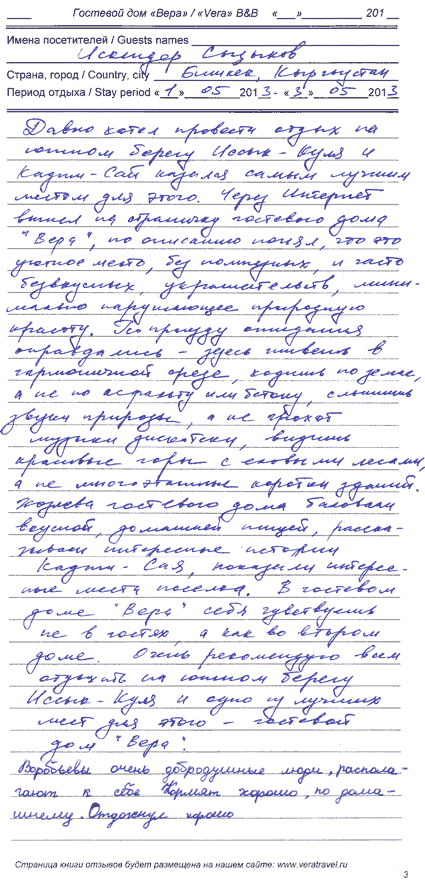 Гостевой дом «Вера» / «Vera» B&B «___»____________ 201__
Имена посетителей / Guests names
Искендер Сыдыков
Страна, город / Country, city Бишкек, Кыргызстан
Период отдыха / Stay period «1» 05 2013- «3» 05 2013
Давно хотел провести отдых на
южном берегу Иссык-Куля и
Каджи-Сай казался самым лучшим
местом для этого. Через Интернет
вышел на страничку гостевого дома
"Вера", по описанию понял, что это
уютное место, без помпезных, и часто
безвкусных, украшательств, мини-
мально нарушающее природную
красоту. По приезду ожидания
оправдались - здесь живешь в
гармоничной среде, ходишь по земле,
а не по асфальту или бетону, слышишь
звуки природы, а не грохот
музыки дискотеки, видишь
красивые горы с еловыми лесами,
а не многоэтажные коробки зданий.
Хозяева гостевого дома баловали
вкусной, домашней пищей, расска-
зывали интересные истории
Каджи-Сая, показали интерес-
ные места поселка. В гостевом
доме "Вера" себя чувствуешь
не в гостях, а как во втором
доме. Очень рекомендую всем
отдыхать на южном берегу
Иссык-Куля и одно из лучших
мест для этого - гостевой
дом "Вера".
Воробьевы очень добродушные люди, распола-
гают к себе Кормят хорошо, по дома-
шнему. Отдохнул хорошо
Страница книги отзывов будет размещена на нашем сайте: www.veratravel.ru
3